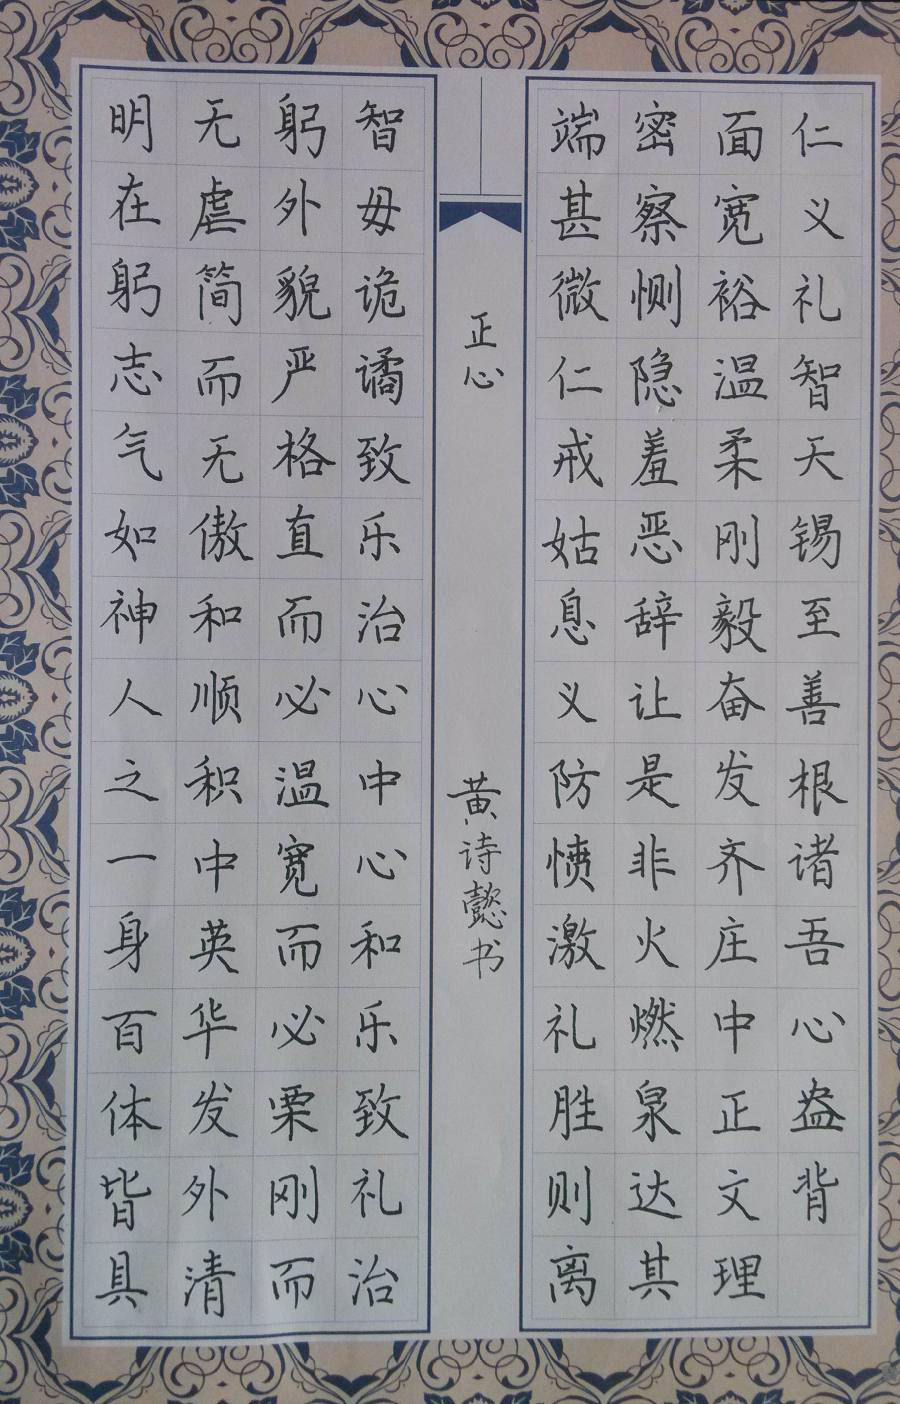 仁义礼智天锡至善根诸吾心盎背
面宽裕温柔刚毅奋发齐庄中正文理
密察恻隐羞恶辞让是非火燃泉达其
端甚微仁戒姑息义防愤激礼胜则离
正心
黄诗懿书
智毋诡谲致乐治心中心和乐致礼治
躬外貌严格直而必温宽而必栗刚而
无虐简而无傲和顺积中英华发外清
明在躬志气如神人之一身百体皆具